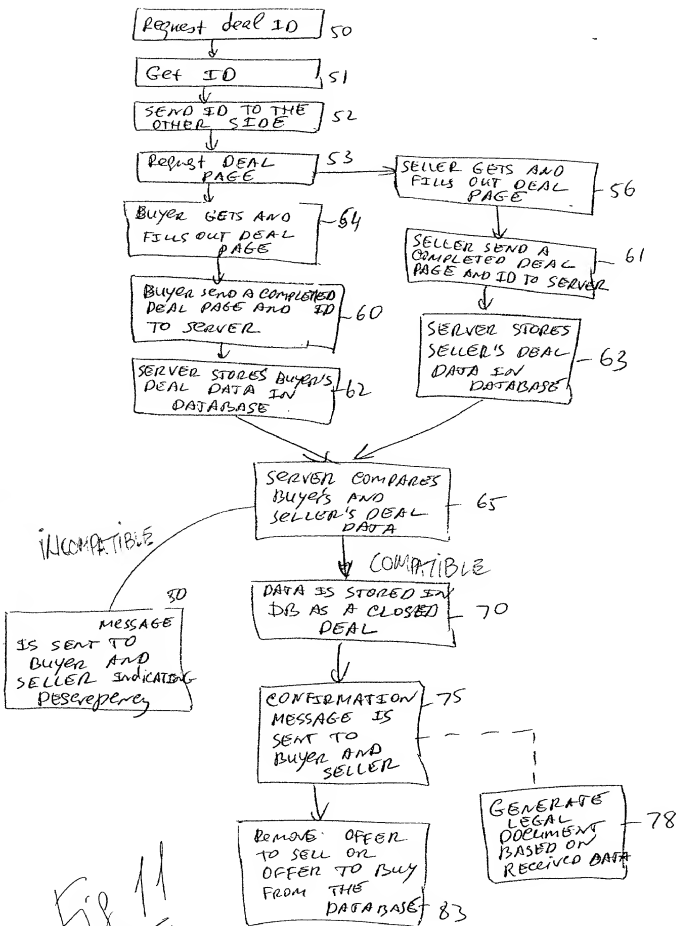 Request deal ID
50
Get ID
51
SEND ID TO THE
OTHER SIDE
52
Request DEAL
PAGE
53
SELLER GETS AND
FILLS OUT DEAL
PAGE
56
BUYER GETS AND
FILLS OUT DEAL
PAGE
54
SELLER SEND A
COMPLETED DEAL
PAGE AND ID TO SERVER
61
BUYER SEND A COMPLETED
DEAL PAGE AND ID
TO SERVER
60
SERVER STORES
SELLER'S DEAL
DATA IN
DATABASE
63
SERVER STORES BUYER'S
DEAL DATA IN
DATABASE
62
SERVER COMPARES
BUYER'S AND
SELLER'S DEAL
DATA
65
INCOMPATIBLE
COMPATIBLE
DATA IS STORED IN
DB AS A CLOSED
DEAL
70
MESSAGE
IS SENT TO
BUYER AND
SELLER INDICATING
Descrepency
CONFIRMATION
MESSAGE IS
SENT TO
BUYER AND
SELLER
75
GENERATE
LEGAL
DOCUMENT
BASED ON
RECEIVED DATA
78
REMOVE OFFER
TO SELL OR
OFFER TO BUY
FROM THE
DATABASE
83
Fig 11